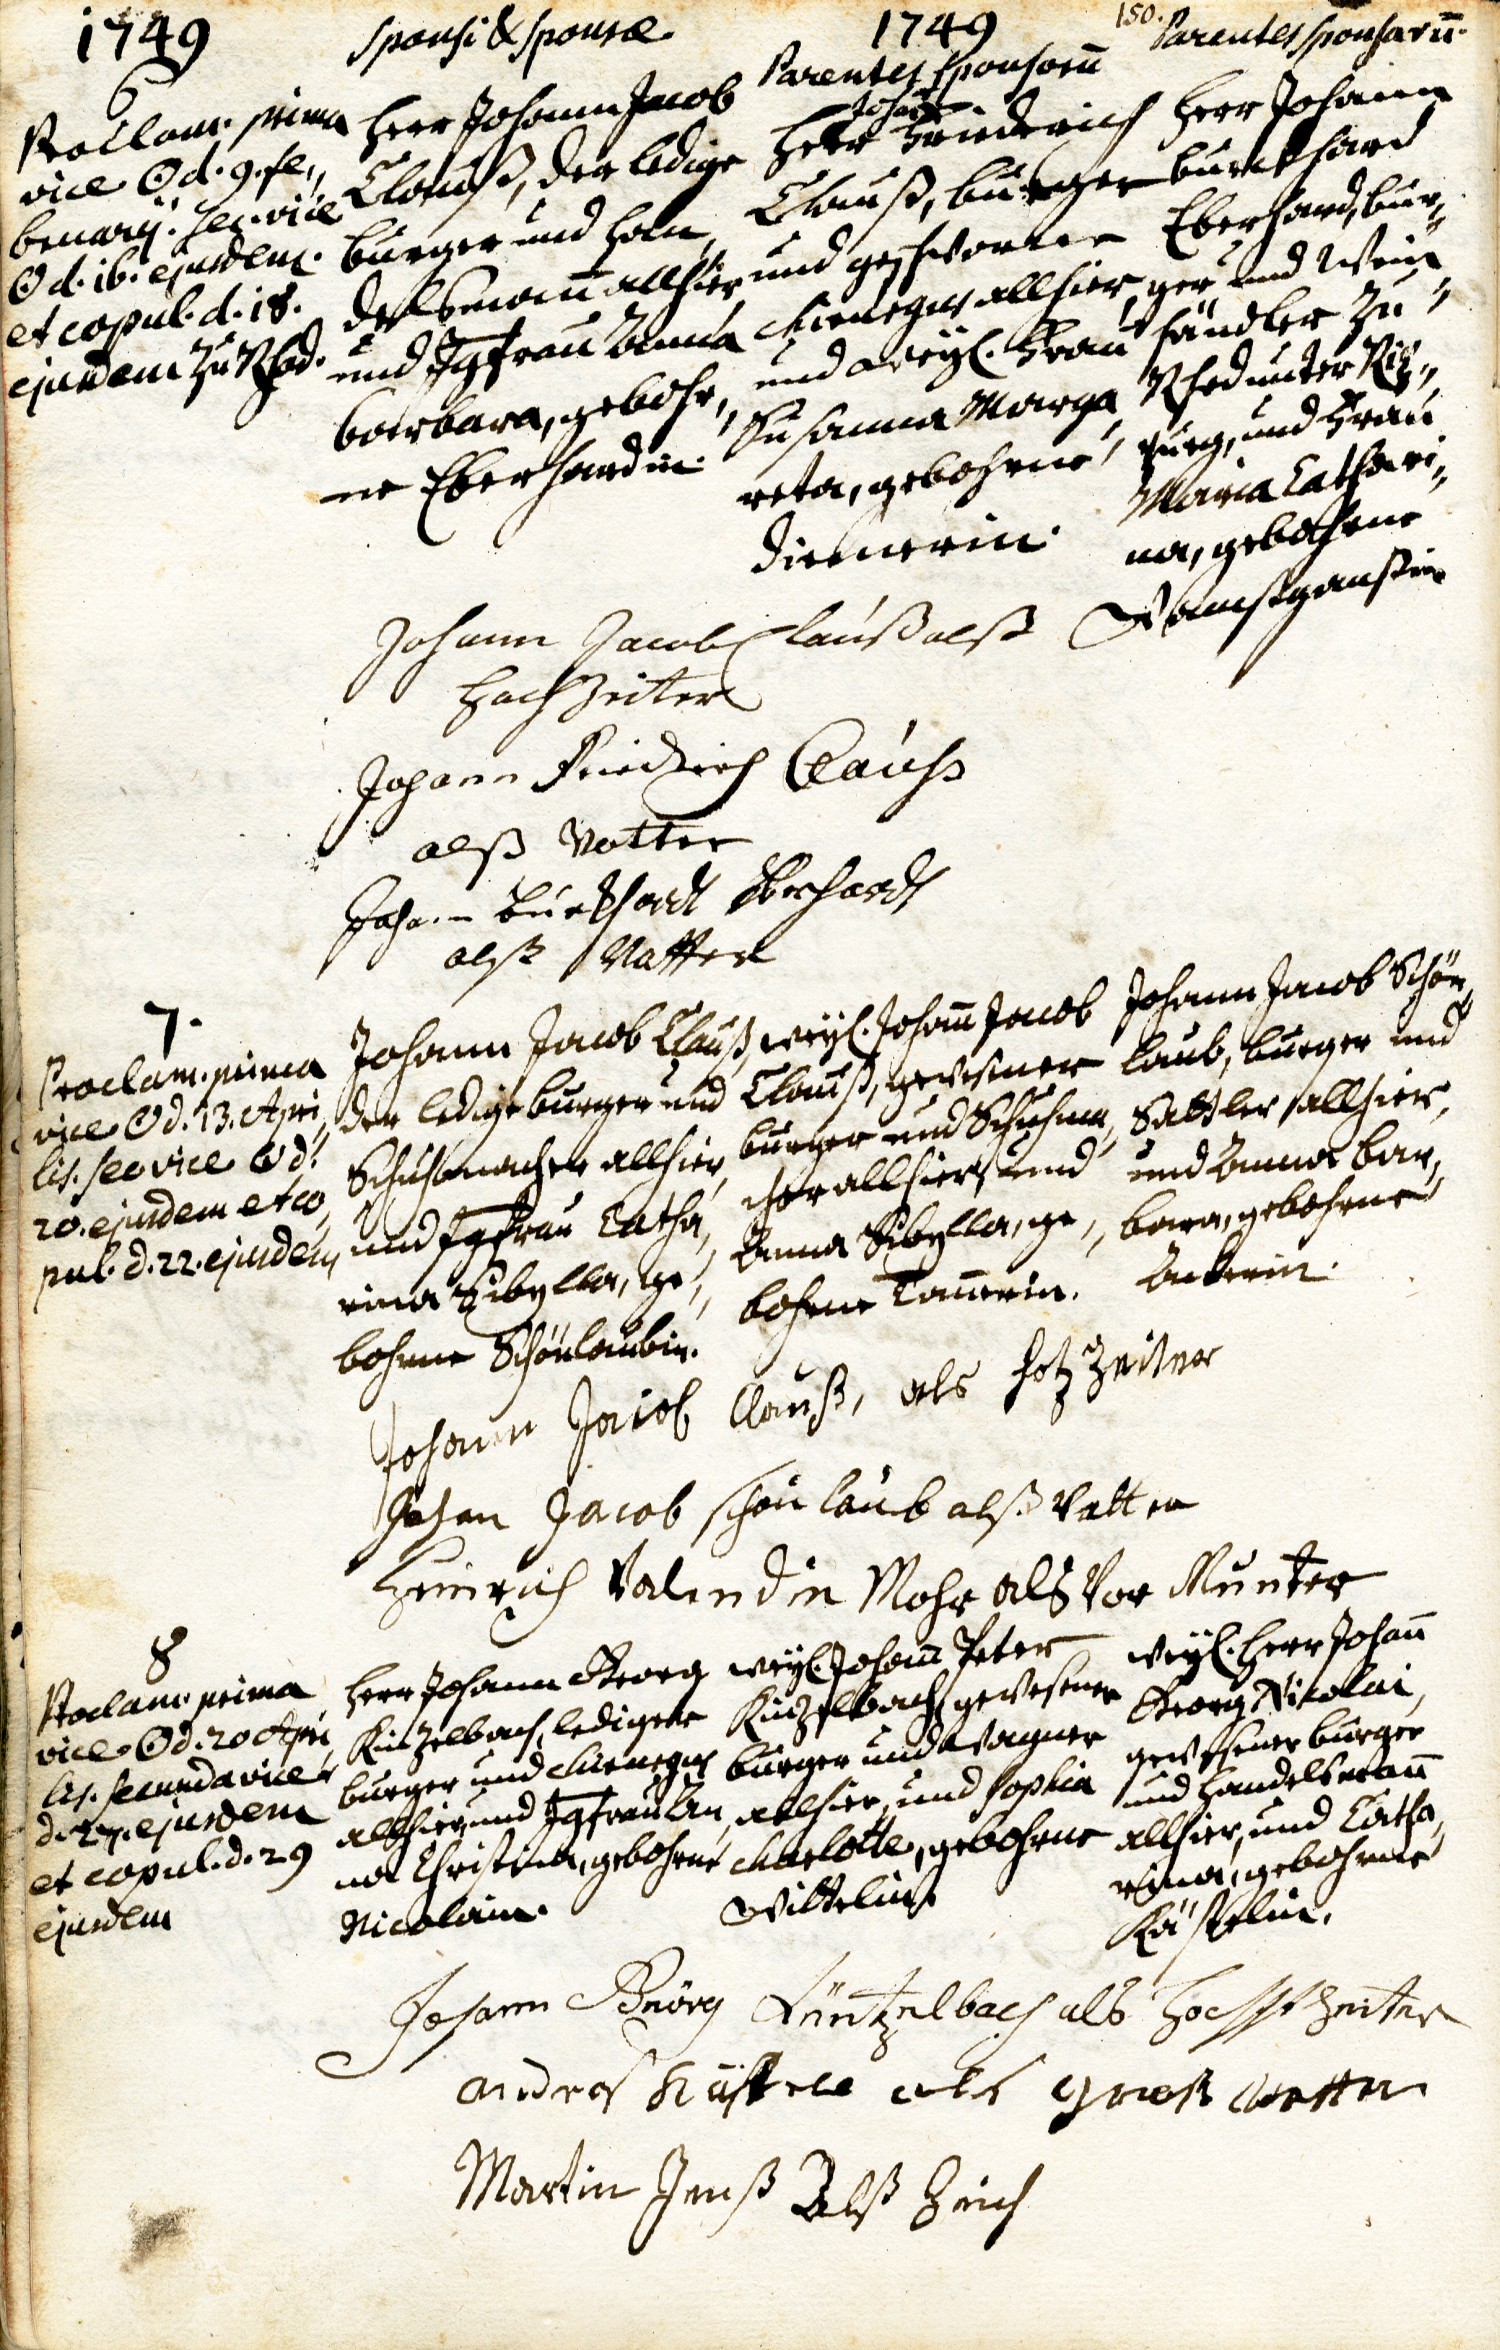 1749
Sponsi & Sponsæ
1749
150.
Parentes Sponsorū
Parentes Sponsarū.
6
Proclam. prima
vice ☉ d. 9. fe„
bruarij. sec. vice
☉ d. 16. ejusdem.
et copul. d. 18.
ejusdem zu Rhod.
Herr Johann Jacob
Clauß, der ledige
burger und han„
delsmann allhier,
und Jgfrau Anna
barbara, gebohr„
ne Eberhardin.
Johann
Herr Friderich
Clauß, burger
und geschworner
Chirurgus allhier,
und weyl. Frau
Susanna Marga„
reta, gebohrne
Diemerin.
Herr Johann
burckhard
Eberhard, bur„
ger und Wein„
händler zu
Rhod unter Riz„
purg, und Frau
Maria Cathari„
na, gebohrne
Wamsganßin
Johann Jacob Claußalß
Hochzeiter
Johann Friedrich Clauß
alß Vatter
Johann Burckhardt Eberhardt
alß Vatter
7.
Proclam. prima
vice ☉ d. 13. Apri„
lis. sec vice ☉ d.
20. ejusdem et co„
pul. d. 22. ejusdem
Johann Jacob Clauß,
der ledige burger und
Schuhmacher allhier,
und Jgfrau Catha„
rina Sibylla, ge„
bohrne Schönlaubin.
weyl. Johann Jacob
Clauß, gewesener
burger und Schuhma„
cher allhier, und
Anna Sibylla, ge„
bohrne Tannerin.
Johann Jacob Schön„
laub, burger und
Sattler allhier,
und Anna bar„
bara, gebohrne
Johann Jacob Clauß, als hotzzeiter
Johan Jacob schönlaub alß Vatter
Heinrich Valendin Mohr als Vor Munter
8
Proclam. prima
vice ☉ d. 20 Apri„
lis. secunda vice
d. 27. ejusdem
et copul. d. 29
ejusdem
Herr Johann Georg
Kinzelbach, lediger
burger und Chirurgus
allhier, und Jgfrau An„
na Christina, gebohrne
Nicolain.
weyl. Johann Peter
Kinzelbach, gewesener
burger und Wagner
allhier, und Sophia
Charlotte, gebohrne
Wittelin.
weyl. Herr Johann
Georg Nicolai,
gewesener burger
und handelsmann
allhier, und Catha„
rina, gebohrne
Kästelin.
Johann Geörg Küntzelbach als Hochzeiter
andres Kästele als groß vatter
Martin Jenß Alß Zeich